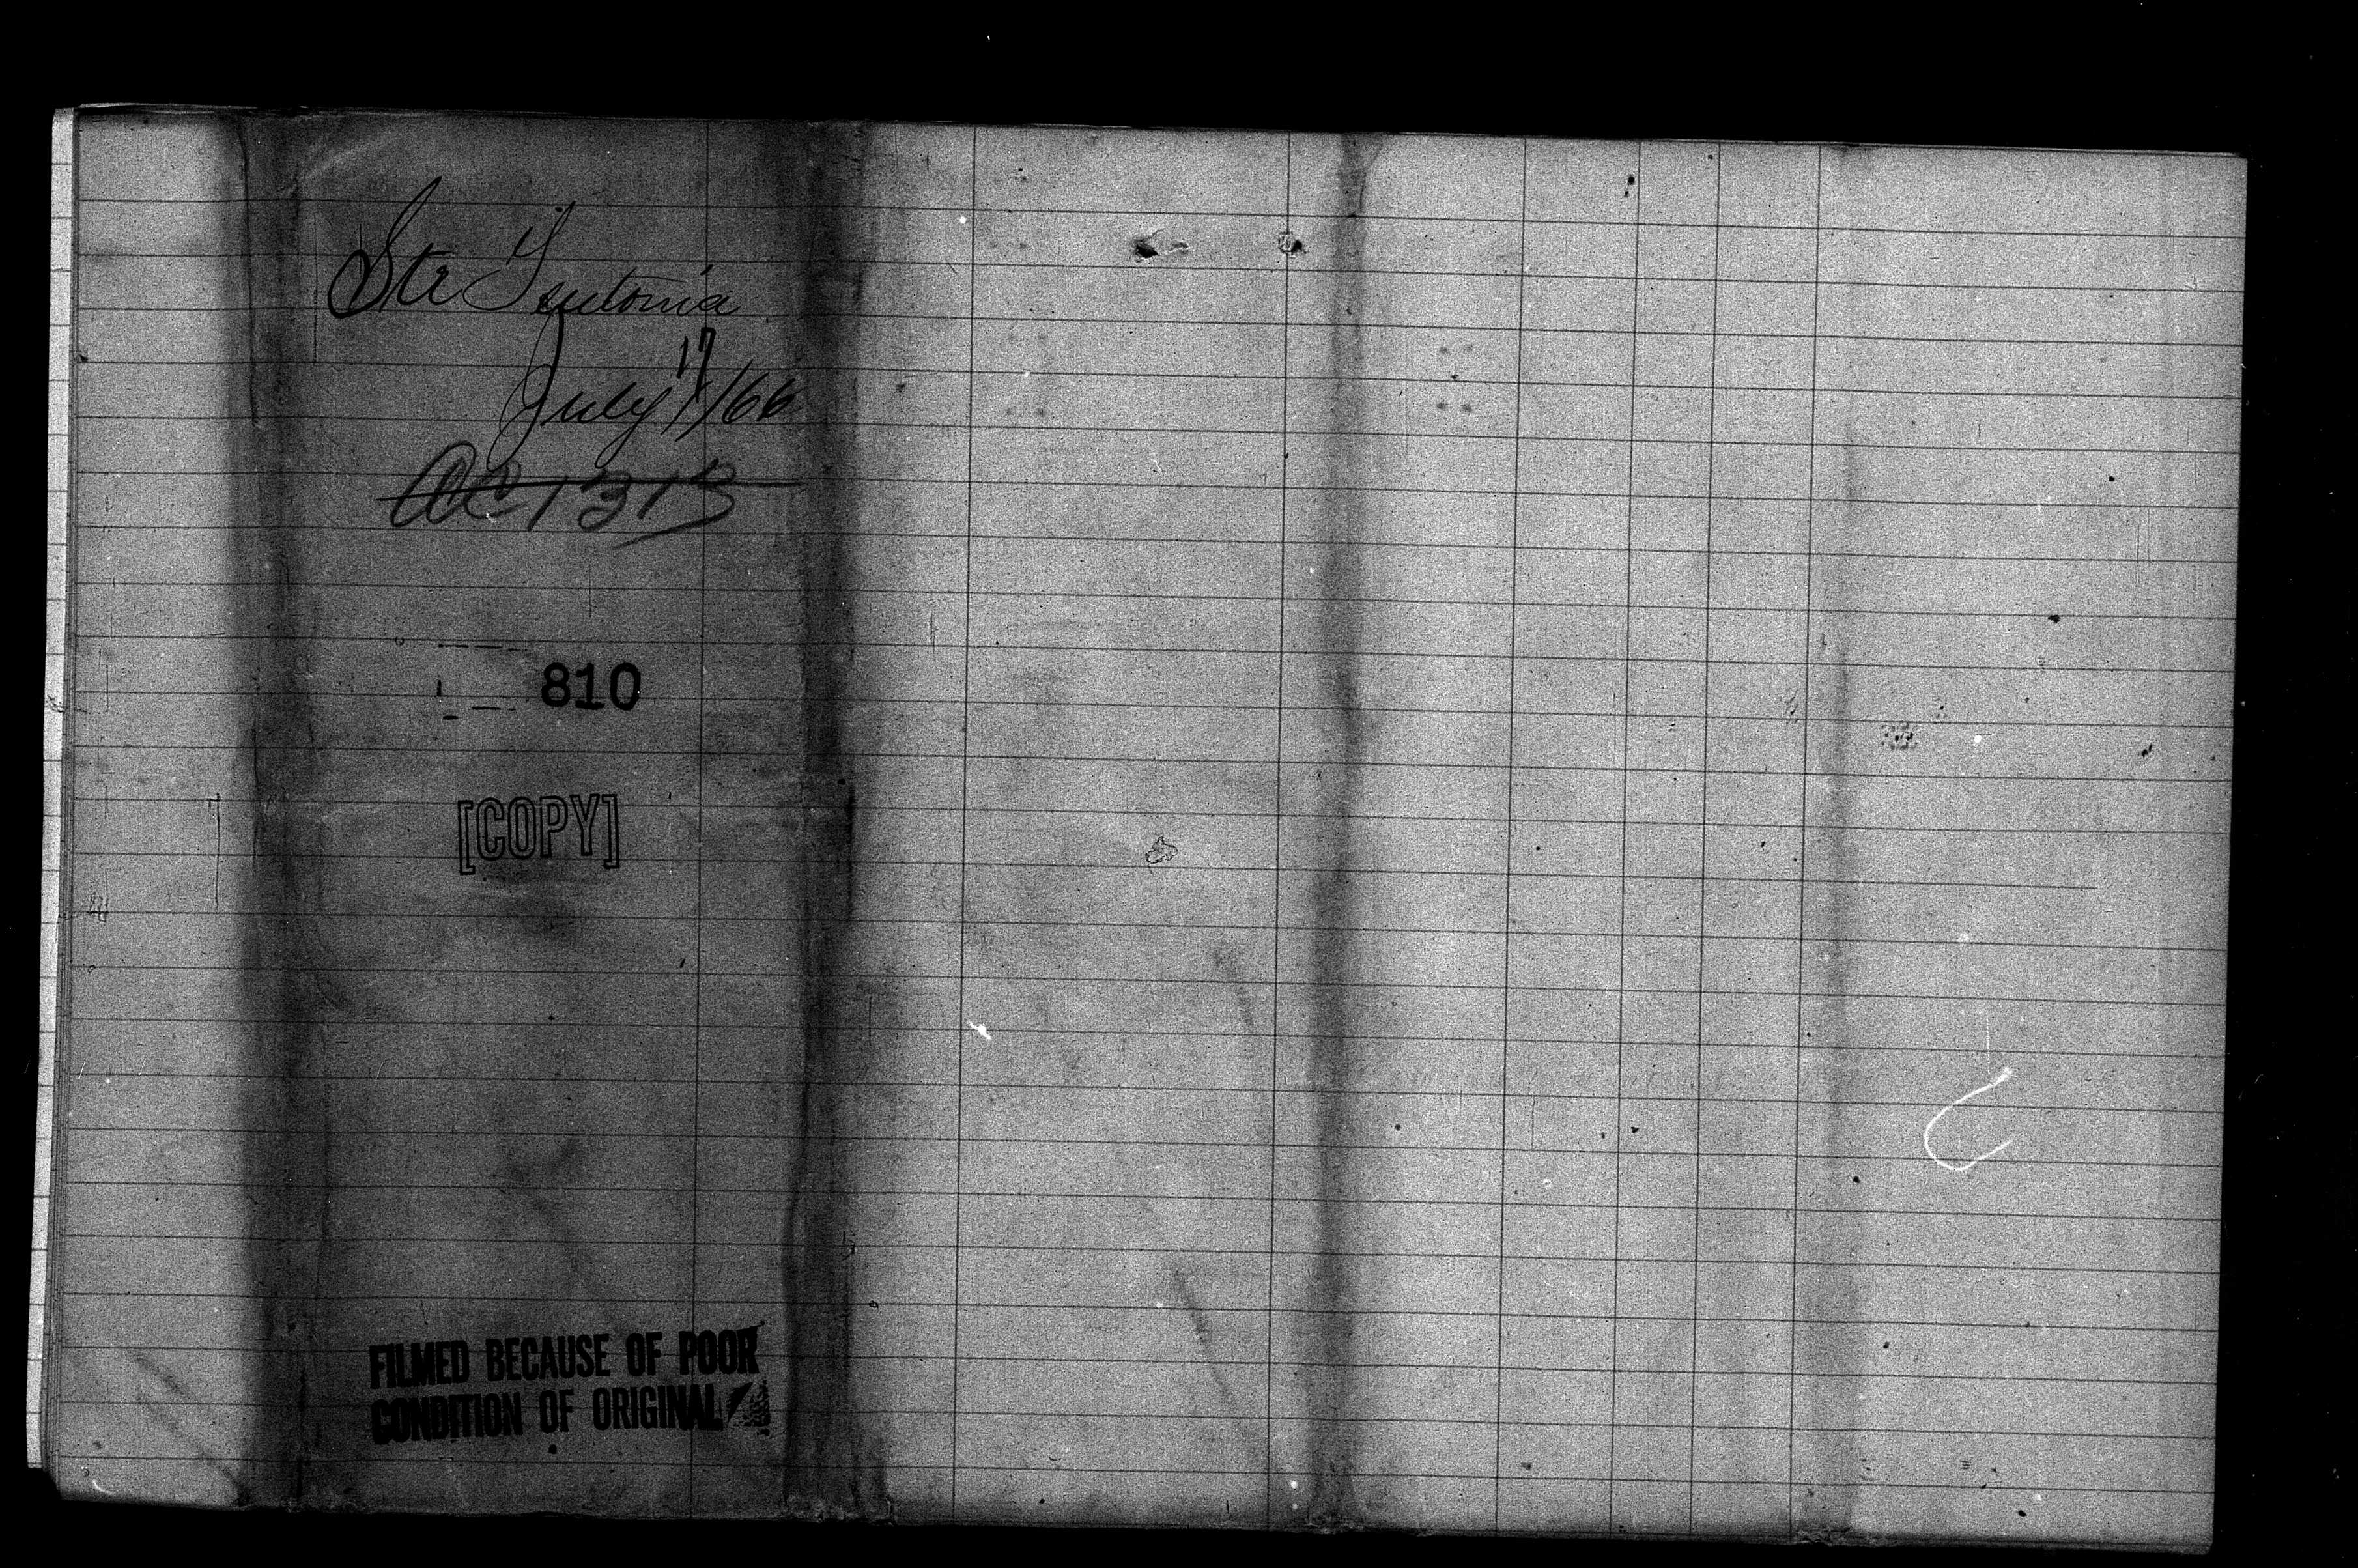 Str Teutonia
17
July 17/66
CC 1313
810
[COPY]
FILMED BECAUSE OF POOR
CONDITION OF ORIGINAL